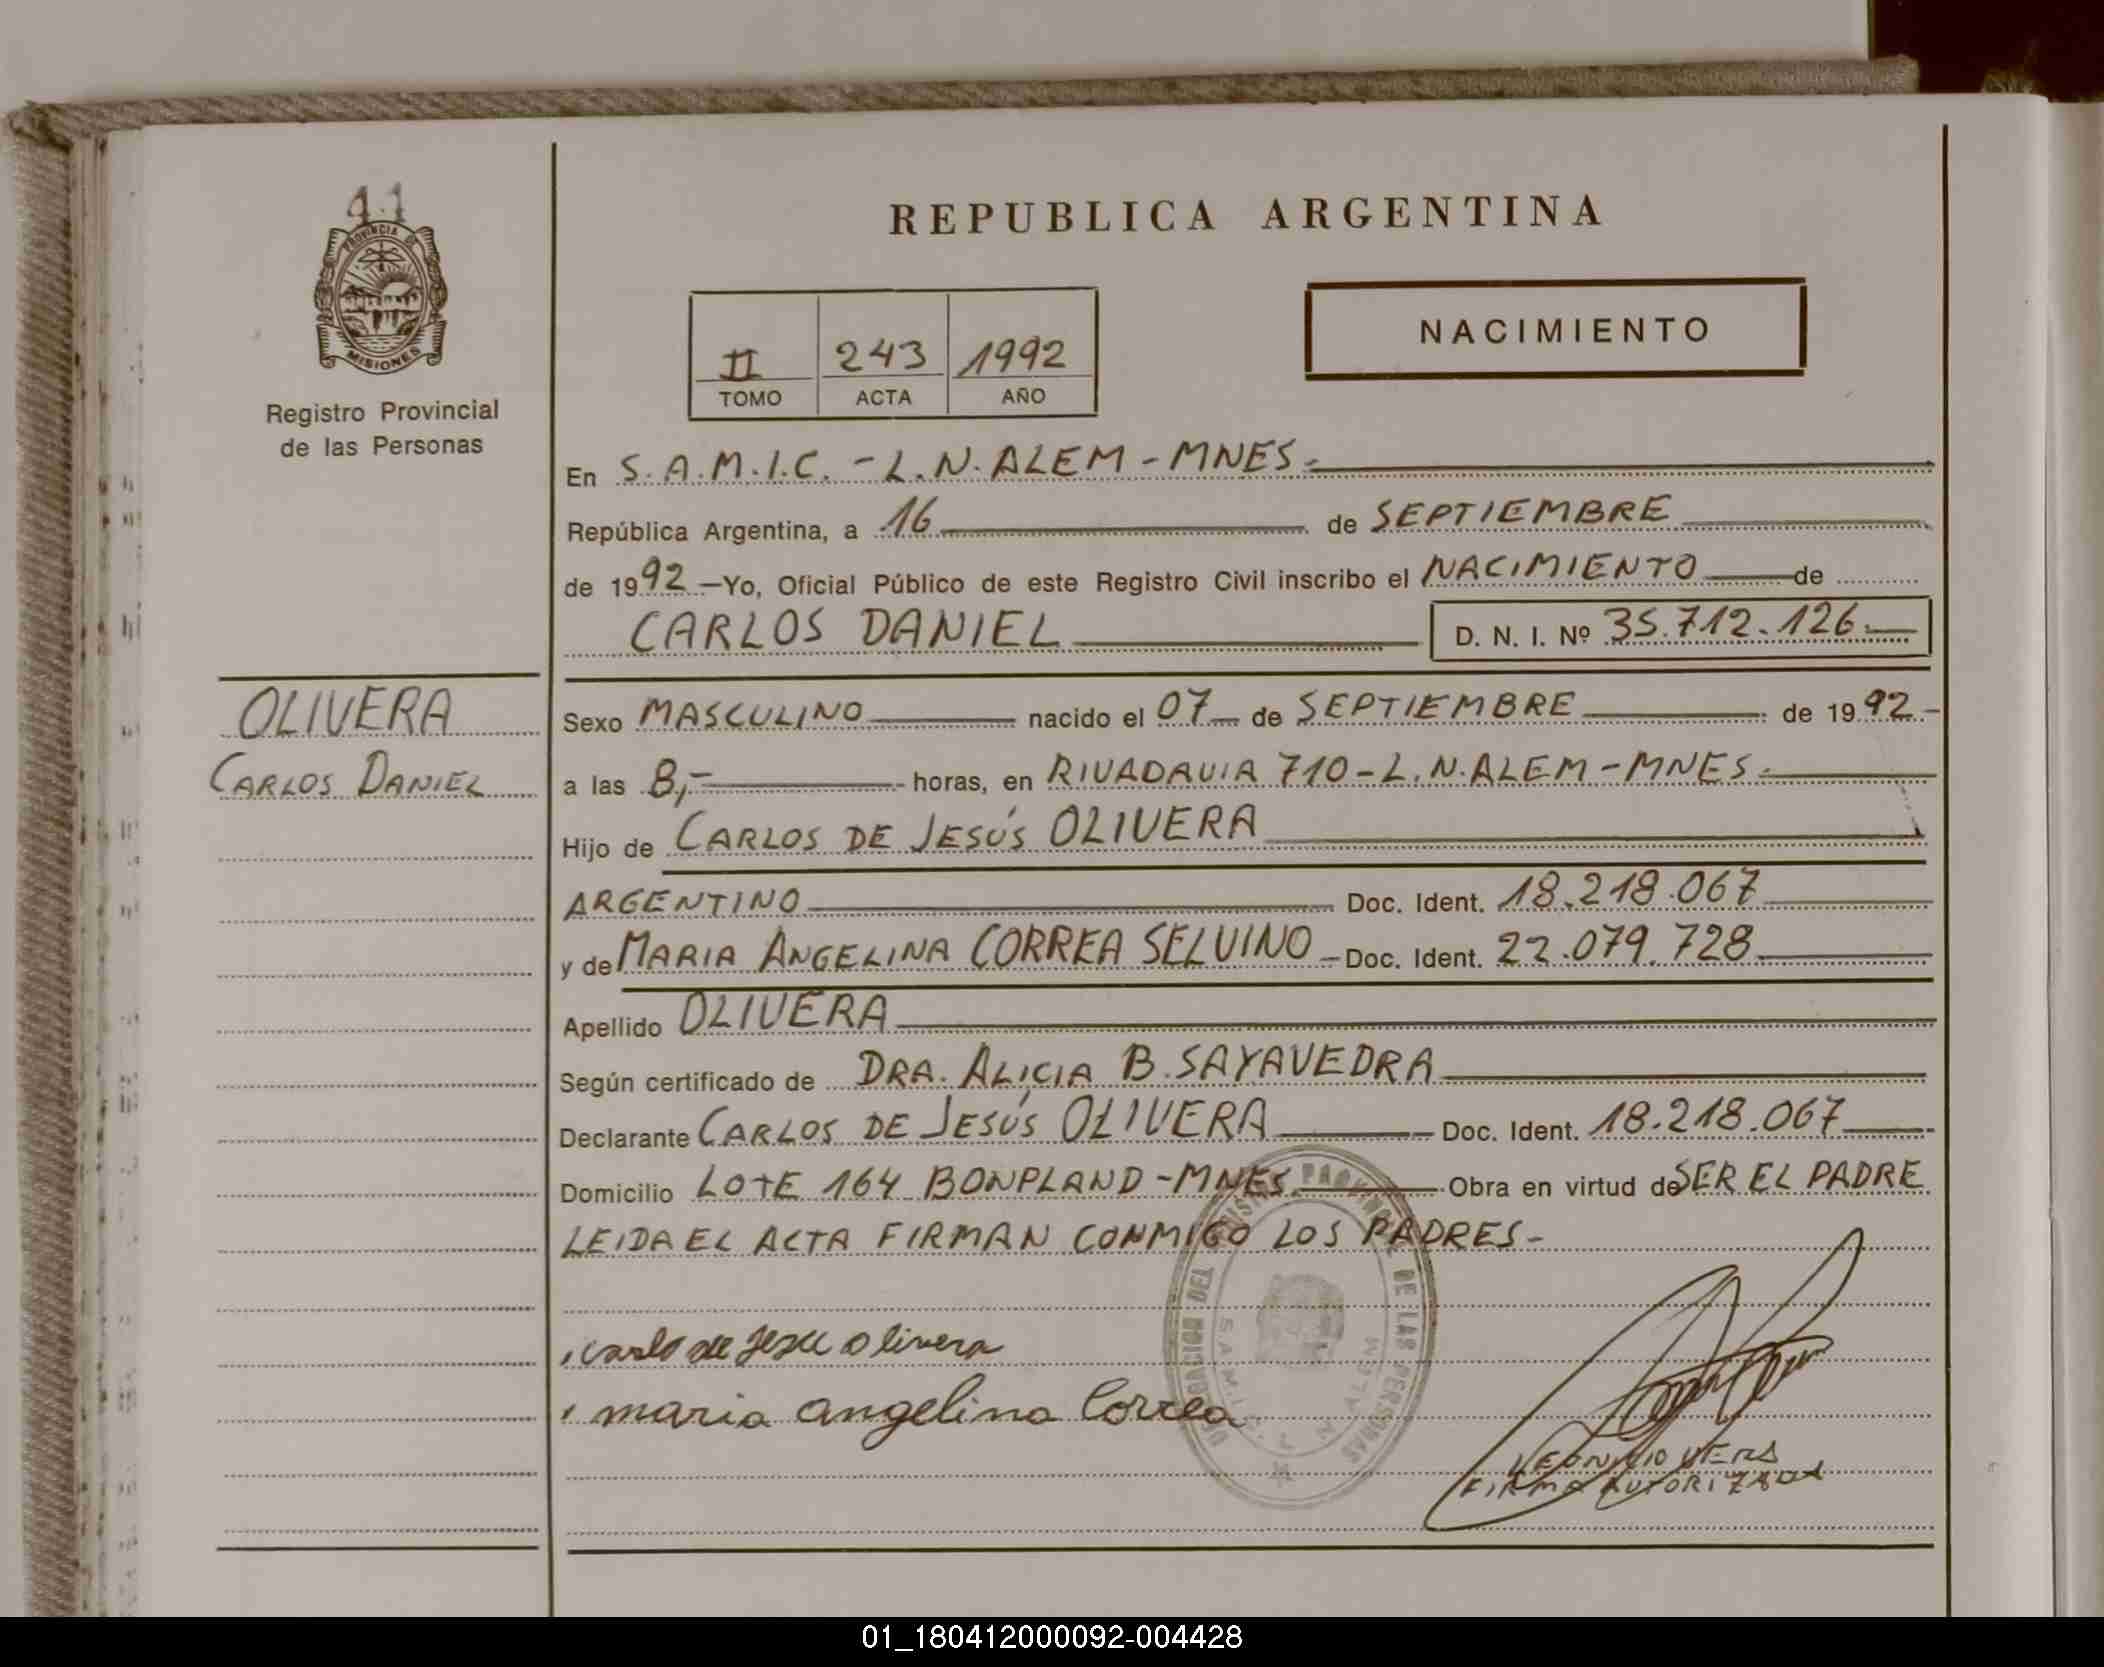 41
PROVINCIA DE
MISIONES
Registro Provincial
de las Personas
OLIVERA
CARLOS DANIEL
REPUBLICA ARGENTINA
II 243 1992
TOMO ACTA AÑO
NACIMIENTO
En S.A.M.I.C. - L.N. ALEM - MNES.
República Argentina, a 16 de SEPTIEMBRE
de 1992 — Yo, Oficial Público de este Registro Civil inscribo el NACIMIENTO de
CARLOS DANIEL D. N. I. Nº 35.712.126.
Sexo MASCULINO nacido el 07 de SEPTIEMBRE de 1992 -
a las 8,- horas, en RIVADAVIA 710 - L.N. ALEM - MNES.
Hijo de CARLOS DE JESÚS OLIVERA
ARGENTINO Doc. Ident. 18.218.067
y de MARIA ANGELINA CORREA SELVINO - Doc. Ident. 22.079.728
Apellido OLIVERA
Según certificado de DRA. ALICIA B. SAYAVEDRA
Declarante CARLOS DE JESÚS OLIVERA Doc. Ident. 18.218.067
Domicilio LOTE 164 BONPLAND - MNES. Obra en virtud de SER EL PADRE
LEIDA EL ACTA FIRMAN CONMIGO LOS PADRES -
DELEGACION DEL REGISTRO PROVINCIAL DE LAS PERSONAS
S.A.M.I.C. L. N. ALEM
carlo de Jesu olivera
maria angelina Correa
FIRMA AUTORIZADA
01_180412000092-004428